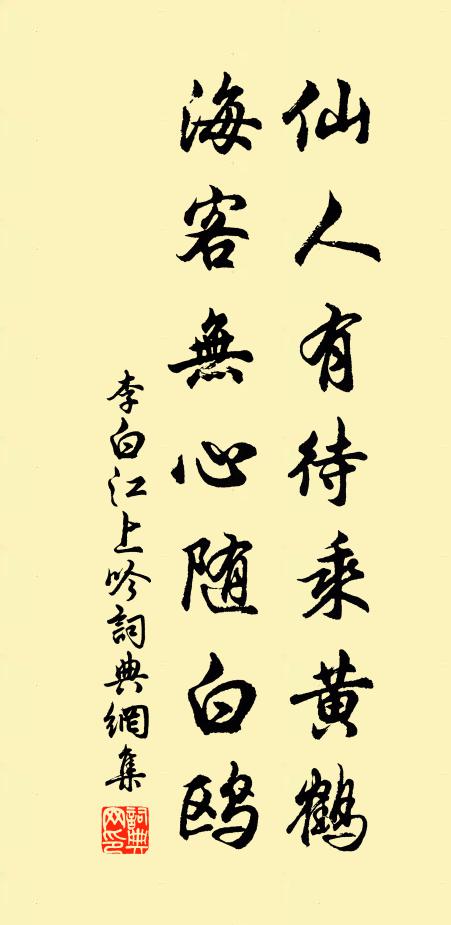 仙人有待乘黄鹤
海客無心随白鸥
李白江上吟詞典網集
詞典网印